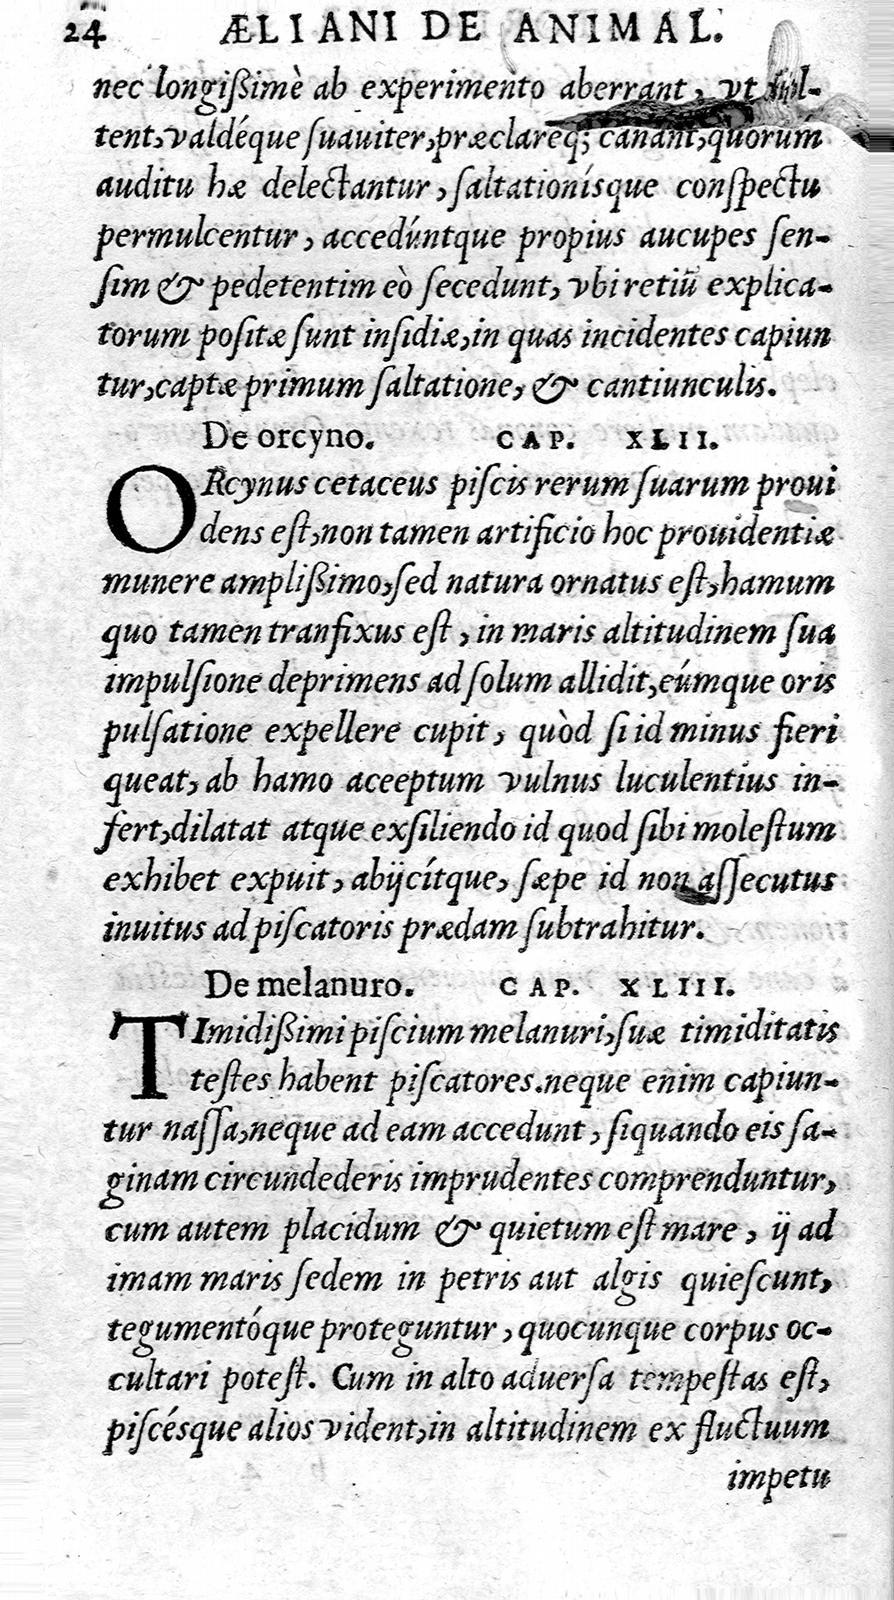 24 ÆLIANI DE ANIMAL.
nec longißimè ab experimento aberrant, vt sal-
tent, valdéque suauiter, præclareq; canant, quorum
auditu hæ delectantur, saltationísque conspectu
permulcentur, accedúntque propius aucupes sen-
sim & pedetentim eò secedunt, vbi retiū explica-
torum positæ sunt insidiæ, in quas incidentes capiun
tur, captæ primum saltatione, & cantiunculis.
De orcyno. CAP. XLII.
ORcynus cetaceus piscis rerum suarum proui
dens est, non tamen artificio hoc prouidentiæ
munere amplißimo, sed natura ornatus est, hamum
quo tamen tranfixus est, in maris altitudinem sua
impulsione deprimens ad solum allidit, eúmque oris
pulsatione expellere cupit, quòd si id minus fieri
queat, ab hamo aceeptum vulnus luculentius in-
fert, dilatat atque exsiliendo id quod sibi molestum
exhibet expuit, abijcítque, sæpe id non assecutus
inuitus ad piscatoris prædam subtrahitur.
De melanuro. CAP. XLIII.
TImidißimi piscium melanuri, suæ timiditatis
testes habent piscatores. neque enim capiun-
tur nassa, neque ad eam accedunt, siquando eis sa-
ginam circundederis imprudentes comprenduntur,
cum autem placidum & quietum est mare, ij ad
imam maris sedem in petris aut algis quiescunt,
tegumentóque proteguntur, quocunque corpus oc-
cultari potest. Cum in alto aduersa tempestas est,
piscésque alios vident, in altitudinem ex fluctuum
impetu